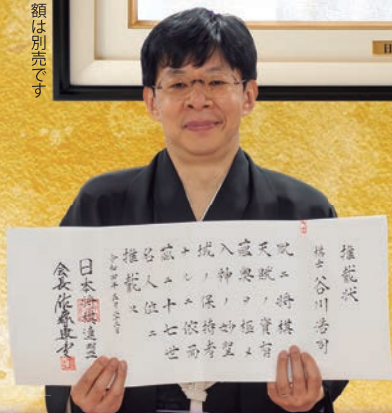 額は別売です
日
推戴状
棋士 谷川浩司
夙ニ将棋
天賦ノ資有
蘊奥ヲ極メ
入神ノ妙聖
域ノ保持者
ナルニ依而
茲ニ十七世
名人位ニ
推戴ス
令和四年五月二十三日
日本将棋連盟
会長 佐藤康光